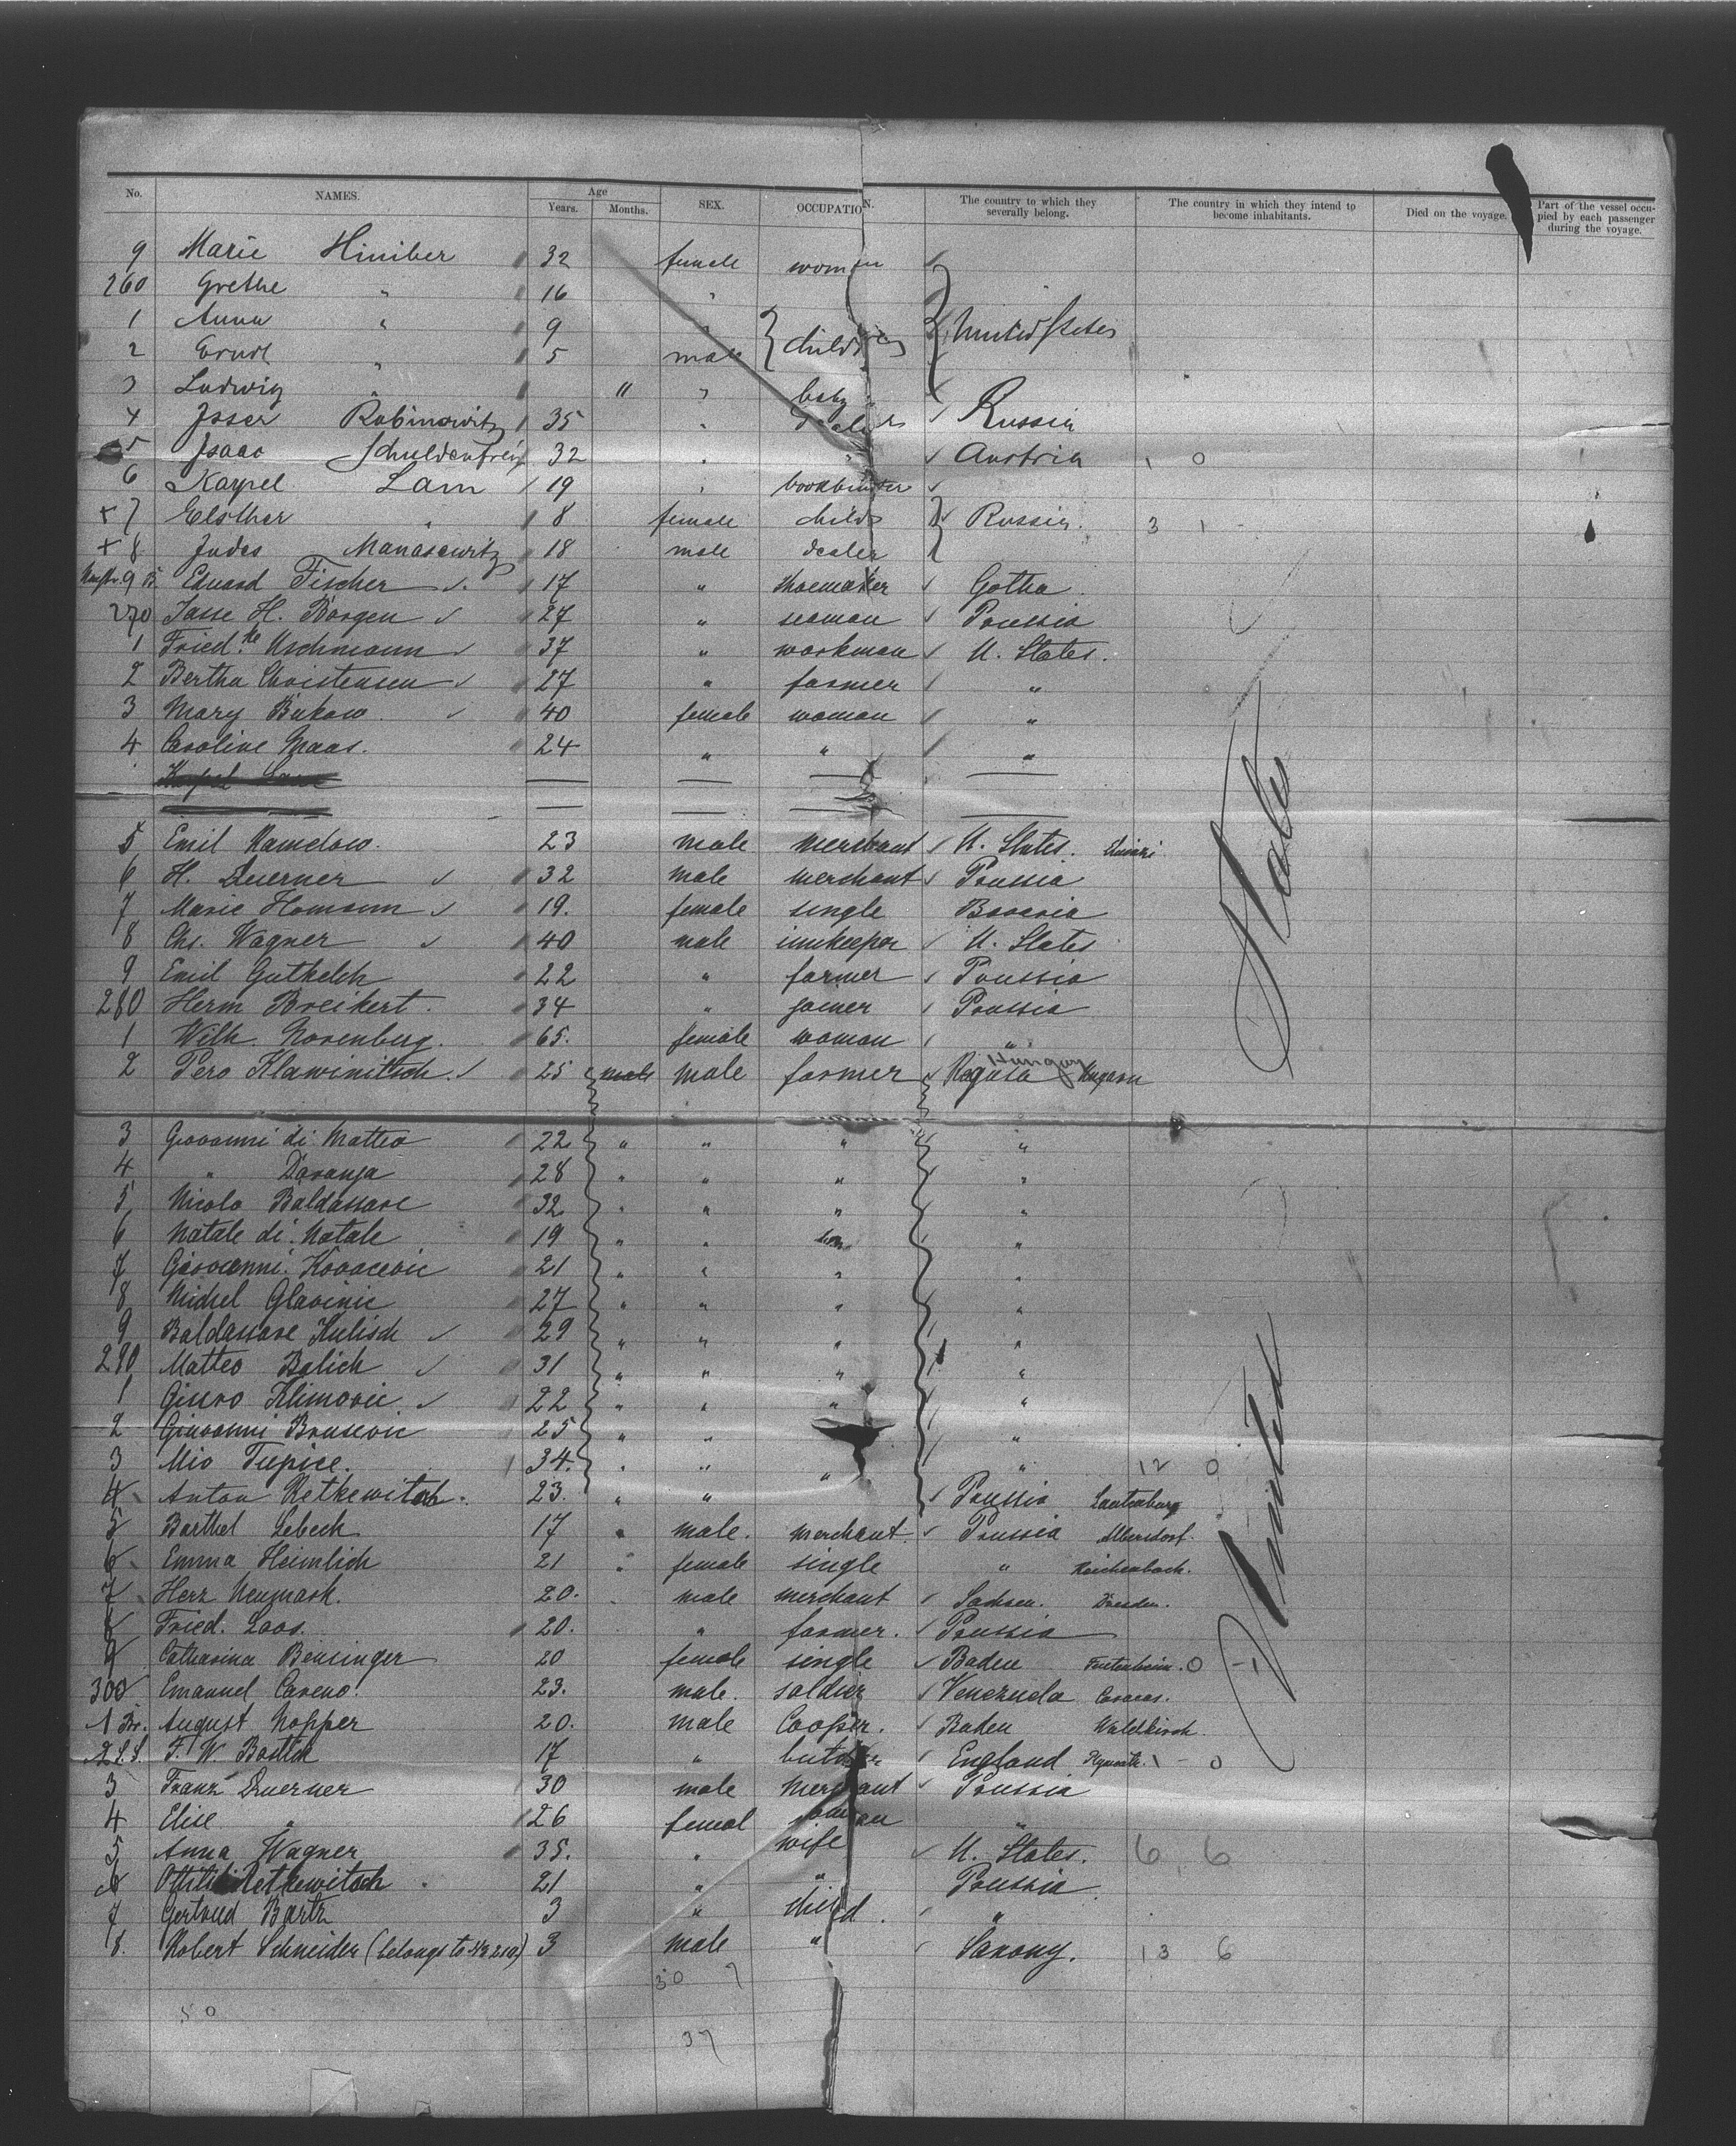 No. NAMES. Age Years. Months. SEX. OCCUPATION. The country to which they severally belong. The country in which they intend to become inhabitants. Died on the voyage. Part of the vessel occupied by each passenger during the voyage.
9 Marie Hiniber 32 female woman
260 Grethe " 16 "
1 Anna " 9 " children United States
2 Ernst " 5 male
3 Ludwig " 11 " baby
4 Isser Rabinowitz 35 " Dealer Russia
5 Isaac Schuldenfrei 32 " " Austria 1 0
6 Kaypel Lam 19 " bookbinder
+ 7 Elsther " 8 female child Russia. 3 1 -
+ 8 Judes Manasewitz 18 male dealer
9 B. Eduard Fischer 17 " shoemaker Gotha
270 Jasse H. Borgen 27 " seaman Prussia
1 Fried.ke Uschmann 37 " workman U. States.
2 Bertha Christensen 27 " farmer "
3 Mary Bukow 40 female woman "
4 Caroline Maas. 24 " " "
Kaypel Lam
5 Emil Ramelow. 23 male merchant U. States.
6 H. Querner 32 male merchant Prussia
7 Marie Homann 19. female single Bavaria
8 Chs. Wagner 40 male innkeeper U. States
9 Emil Guthelch 22 " farmer Prussia
280 Herm Breikert. 34 " joiner Prussia
1 Wilh. Norenberg. 65. female woman "
2 Pero Klawinitsch. 25 male male farmer Ragusa Hungary
3 Giovanni di Matteo 22 " " " "
4 " Daranja 28 " " " "
5 Nicolo Baldassare 32 " " " "
6 Natale di Natale 19 " " "
7 Giovanni Kovacevic 21 " " " "
8 Michel Glavinic 27 " " " "
9 Baldassare Kulisch 29 " " " "
290 Matteo Balich 31 " " " "
1 Giuro Klimovic. 22 " " " "
2 Giovanni Brusevic 25 " " "
3 Mio Tupice. 34. " " " " 12 0
4 Anton Retkewitsch. 23. " " Prussia Lautenburg
5 Barthel Lebeck 17 " male. merchant. Prussia Albersdorf.
6 Emma Heimlich 21 " female single " Reichenbach.
7 Herz Neumark. 20. male merchant Sachsen. Dresden.
8 Fried. Loos. 20. " farmer. Prussia
9 Catharina Bensinger 20 female single Baden 0 - 1
300 Emanuel Careno. 23. male. soldier Venezuela Caracas.
1 Br. August Nopper 20. male Cooper. Baden Waldkirch.
2 F. W. 17 " butcher England Plymouth. 1 - 0
3 Franz Querner 30 male merchant Prussia
4 Elise " 26 femal woman "
5 Anna Wagner 35. " wife U. States. 6, 6
6 Ottilie Retkewitsch 21 " " Prussia.
7 Gertrud Bartz 3 " child. "
8. Robert Schneider (belongs to No 210) 3 male " Saxony. 13 6
30 7
50
37
United States